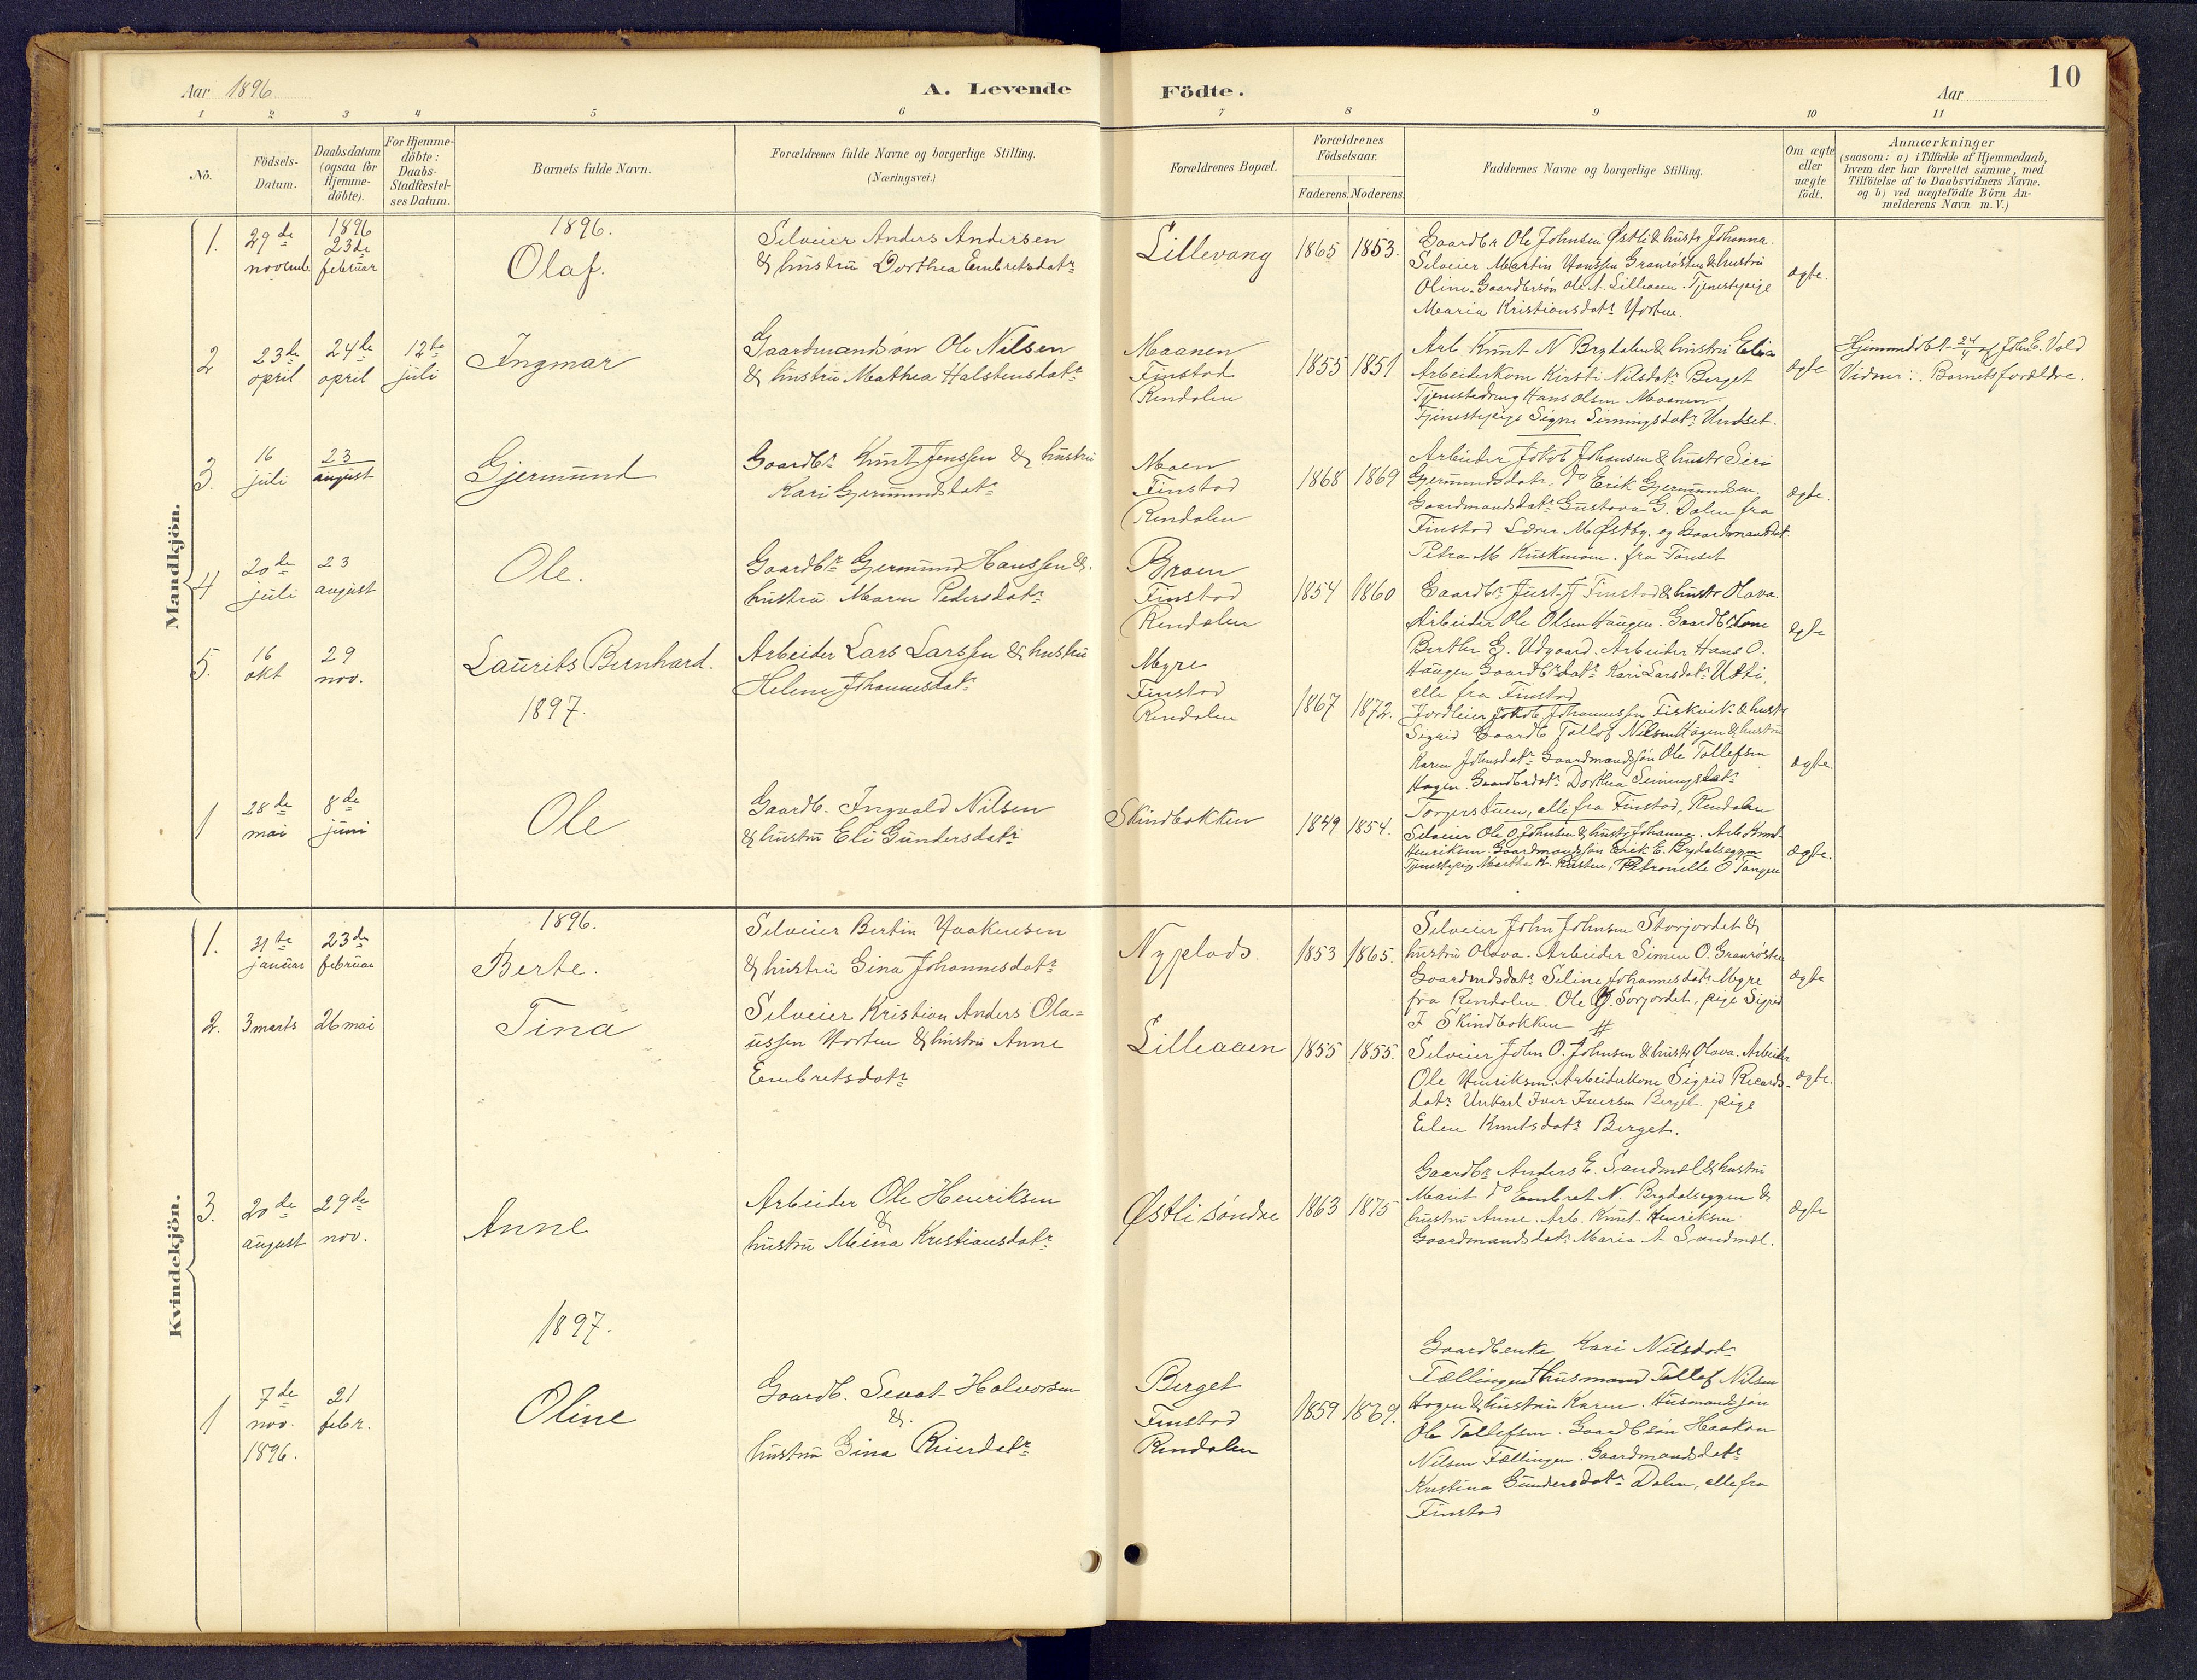 Aar 1896
A. Levende
Födte.
Aar
10
1 2 3 4 5 6 7 8 9 10 11
No.
Födsels-
Datum.
Daabsdatum
(ogsaa for
Hjemme-
döbte).
For Hjemme-
döbte:
Daabs-
Stadfæstel-
ses Datum.
Barnets fulde Navn.
Forældrenes fulde Navne og borgerlige Stilling.
(Næringsvei.)
Forældrenes Bopæl.
Forældrenes
Födselsaar.
Faderens. Moderens.
Faddernes Navne og borgerlige Stilling.
Om ægte
eller
uægte
födt.
Anmærkninger
(saasom: a) i Tilfælde af Hjemmedaab,
hvem der har forrettet samme, med
Tilföielse af to Daabsvidners Navne,
og b) ved uægtefödte Börn An-
melderens Navn m. V.)
Mandkjön.
1.
29de
novemb.
1896
23de
februar
1896.
Olaf.
Selveier Anders Andersen
& hustru Dorthea Embretsdatr
Lillevang
1865
1853.
Gaardbr Ole Johnsen Østli & hustr Johanna.
Selveier Martin Hanssen Granrösten & hustru
Oline. Gaardbrsön Ole A. Lilleaaen. Tjenestepige
Maria Kristiansdatr Horten.
ægte.
2
23de
april
24de
april
12te
juli
Ingmar
Gaardmandsön Ole Nilsen
& hustru Mathea Halstensdatr
Moanen
Finstad
Rendalen
1855
1851
Arb Knut N Brydalen & hustru Elia
Arbeiderkone Kirsti Nilsdatr Berget
Tjenestedreng Hans Olsen Moanen.
Tjenestepige Signe Simingsdatr Undset.
ægte
Hjemmedöbt 24/4 af John E. Vold
Vidner: Barnets forældre.
3.
16
juli
23
august
Gjermund
Gaardbr Knut Jenssen & hustru
Kari Gjermundsdatr
Moen
Finstad
Rendalen
1868
1869
Arbeider Jokob Johansen & hustr Siri
Gjermundsdatr, do Erik Gjermundsen.
Gaardmandsdatr Gustava G. Dalen fra
Finstad Lærer M Østby. og Gaardmandsdat.
Petra M Kuskmoen. fra Tönset
ægte.
4
20de
juli
23
august
Ole.
Gaardbr Gjermund Hanssen &
hustru Maren Pedersdatr
Broen
Finstad
Rendalen
1854
1860
Gaardbr Just J Finstad & hustr Olava.
Arbeider Ole Olsen Haugen. Gaardb kone
Berthe G. Udgaard. Arbeider Hans O.
Haugen Gaardbrdatr Kari Larsdatr Utti,
alle fra Finstad
ægte
5.
16
okt
29
nov.
Laurits Bernhard.
Arbeider Lars Larssen & hustru
Helene Johannesdatr
Myre
Finstad
Rendalen
1867
1872.
Jordleier Jokob Johannessen Fiskvik & hustr
Sigrid Gaardb Tollof Nilsen Hagen & hustru
Karen Johnsdatr Gaardmandssön Ole Tollefsen
Hagen. Gaardbrdatr Dorthea Simingsdatr
Torgerstuen, alle fra Finstad, Rendalen
ægte.
1897.
1
28de
mai
8de
juni
Ole
Gaardb. Ingvald Nilsen
& hustru Eli Gundersdatr
Skindbokken
1849
1854.
Selveier Ole O Johnsen & hustr Johanna. Arb Knut
Henriksen. Gaardmandssön Erik E. Brydalseggen
Tjenestepig Martha K. Kristine, Petronelle O Tangen
ægte.
Kvindekjön.
1.
31te
januar
23de
februar
1896.
Berte.
Selveier Bertin Haakensen
& hustru Gina Johannesdatr
Nyplads.
1853
1865.
Selveier John Johnsen Storjordet &
hustru Olava. Arbeider Simen O. Granrösten
Gaardmdsdatr Seline Johannesdatr Myre
fra Rendalen. Ole J. Sorjordet, pige Sigrid
J Skindbokken
ægte
2.
3 marts
26 mai
Tina
Selveier Kristian Anders Ola=
ussen Horten & hustru Anne
Embretsdatr
Lilleaaen
1855
1855.
Selveier John O. Johnsen & hustr Olava. Arbeider
Ole Henriksen. Arbeiderkone Sigrid Ricards-
datr Unkarl Iver Iversen Berget. pige
Elen Knutsdatr Berget.
ægte.
3.
20de
august
29de
nov.
Anne
Arbeider Ole Henriksen
&
hustru Mina Kristiansdatr
Østli söndre
1863
1875
Gaardbr Anders E. Sandmæl & hustru
Marit do Embret N. Brydalseggen &
hustru Anne. Arb. Knut Henriksen
Gaardmandsdatr Maria A Sandmæl.
ægte
1897.
1
7de
nov.
1896.
21
febr.
Oline
Gaardb. Sevat Halvorsen
&
hustru Gina Reiersdatr
Berget
Finstad
Rendalen
1859
1869.
Gaardbenke Kari Nilsdatr
Fællingen Husmand Tollef Nilsen
Hagen & hustru Karen. Husmandssön
Ole Tollefsen. Gaardbsön Haakon
Nilsen Fællingen. Gaardmandsdatr
Kristina Gundersdatr Dalen, alle fra
Finstad